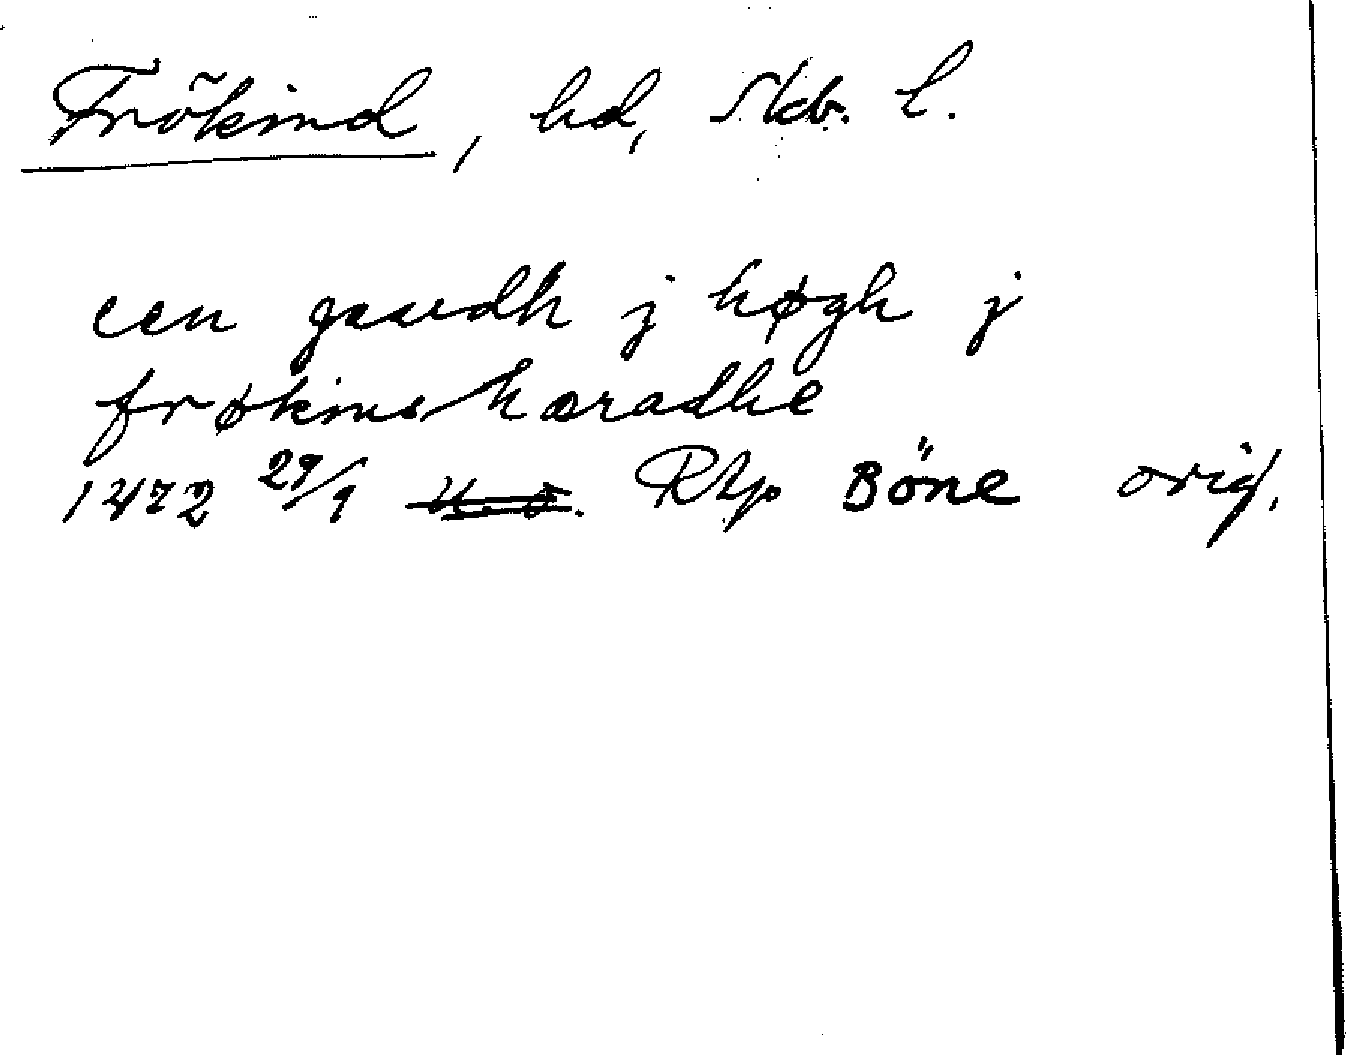 Frökind, hd, Skb. l.
een gaardh j høgh j
frøkins hæradhe
1472 29/9 u. o. RAp Böne orig.